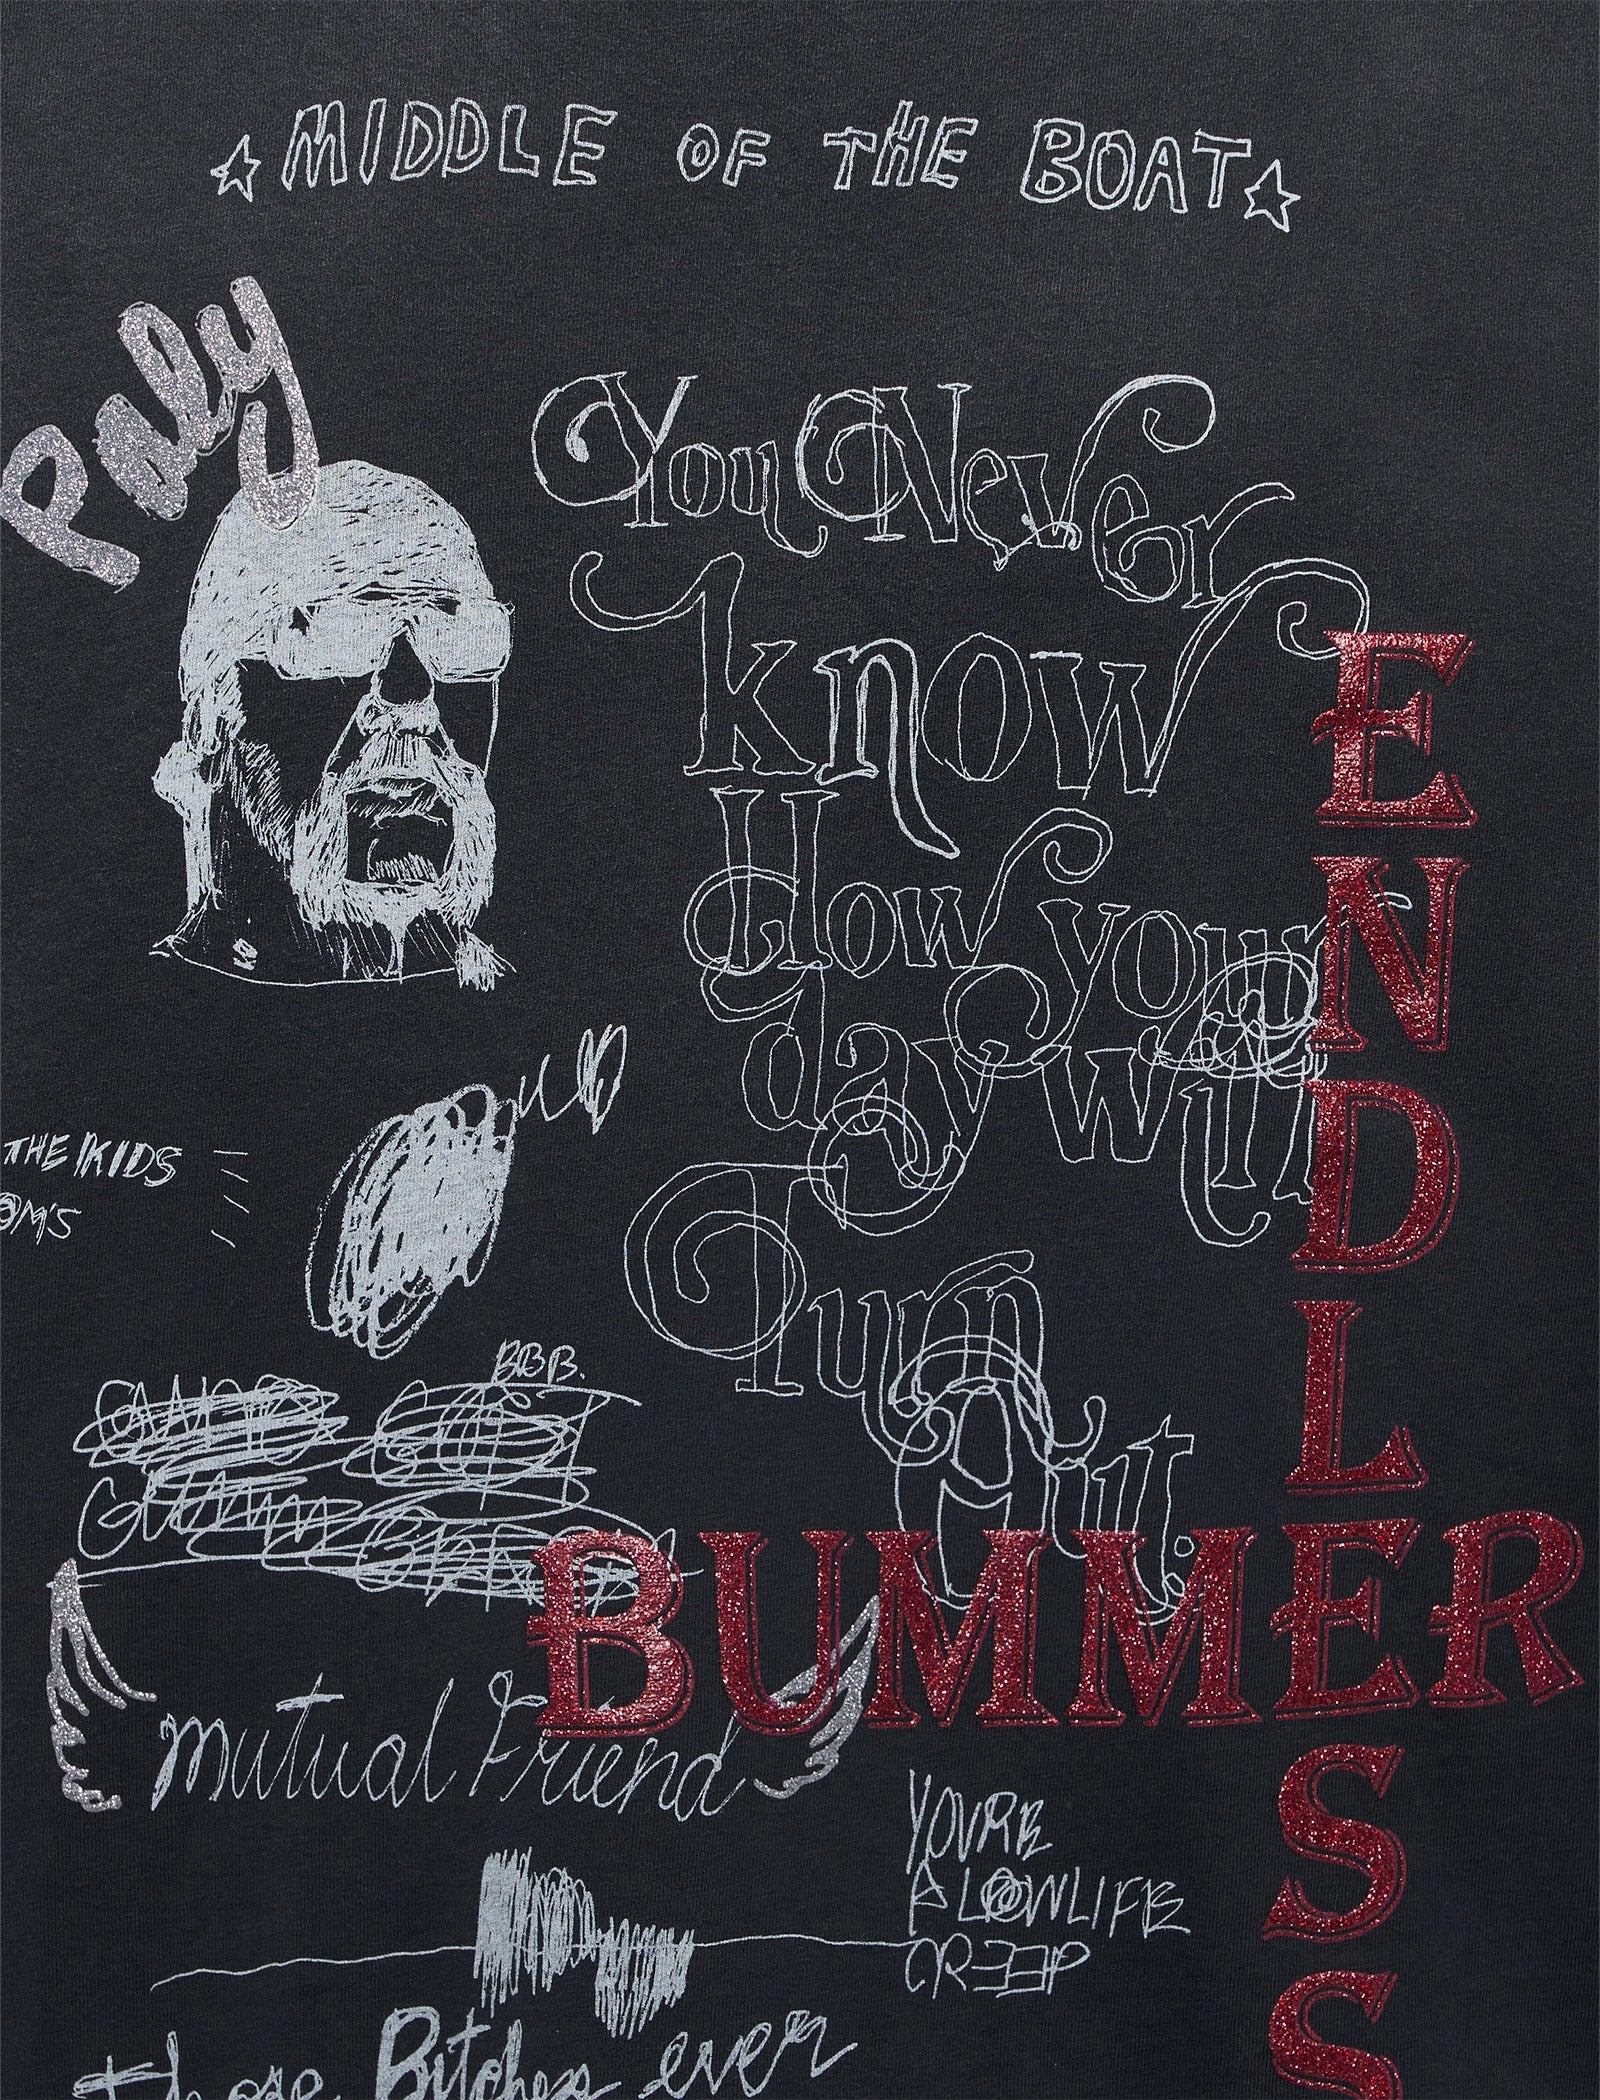 MIDDLE OF THE BOAT
Paly
You Never
know
How your
day will
Turn
Out.
ENDLESS
BUMMER
THE KIDS
B.B.B.
mutual Friend
YOU'RE
A LOWLIFE
CREEP
those Bitches ever